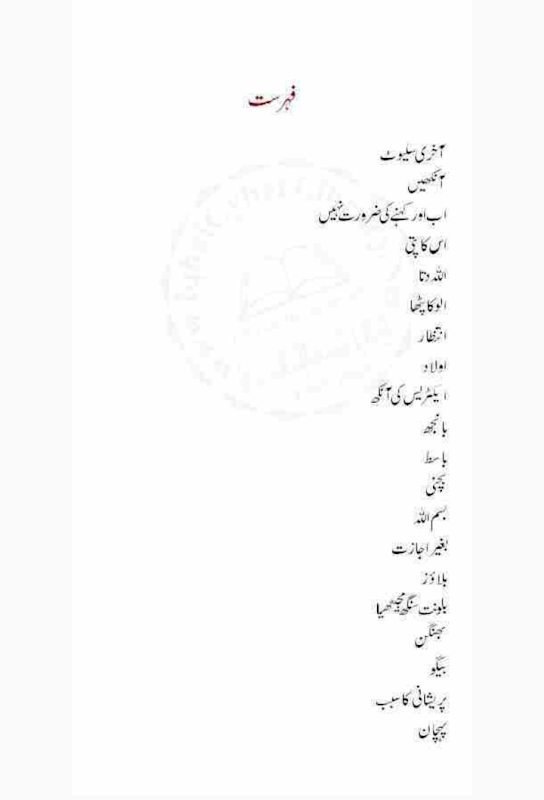 فہرست
آخری سلیوٹ
آنکھیں
اب اور کہنے کی ضرورت نہیں
اس کا پتی
اللہ دتا
الو کا پٹھا
انتظار
اولاد
ایکٹریس کی آنکھ
بانجھ
باسط
بچنی
بسم اللہ
بغیر اجازت
بلاؤز
بلونت سنگھ مجیٹھیا
بھنگن
بیگو
پریشانی کا سبب
پہچان